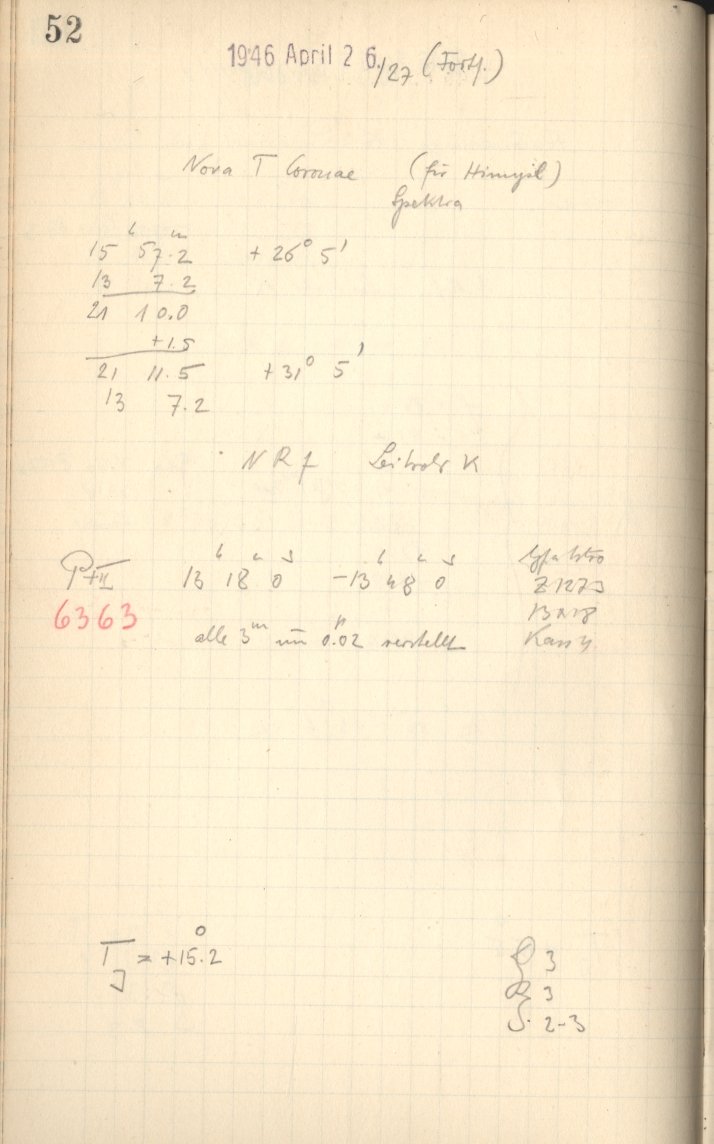 52
1946 April 26./27 (Forts.)
Nova T Coronae (für Himpel)
Spektra
15 h 57.2 m + 26° 5'
13 7.2
21 10.0
+1.5
21 11.5 + 31° 5'
13 7.2
N R f Leitrohr K
13 h 18 m 0 s – 13 h 48 m 0 s
6363
alle 3 m um 0.02 verstellt
T = +15.2°
3
R 3
S. 2-3